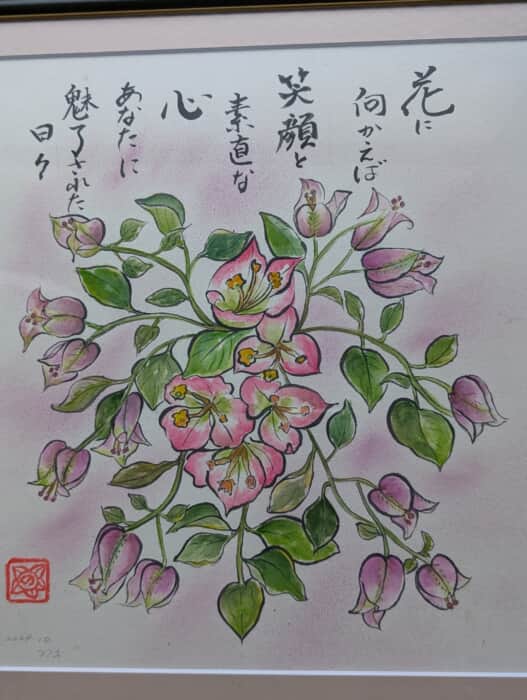 花に
向かえば
笑顔と
素直な
心
あなたに
魅了された
日々